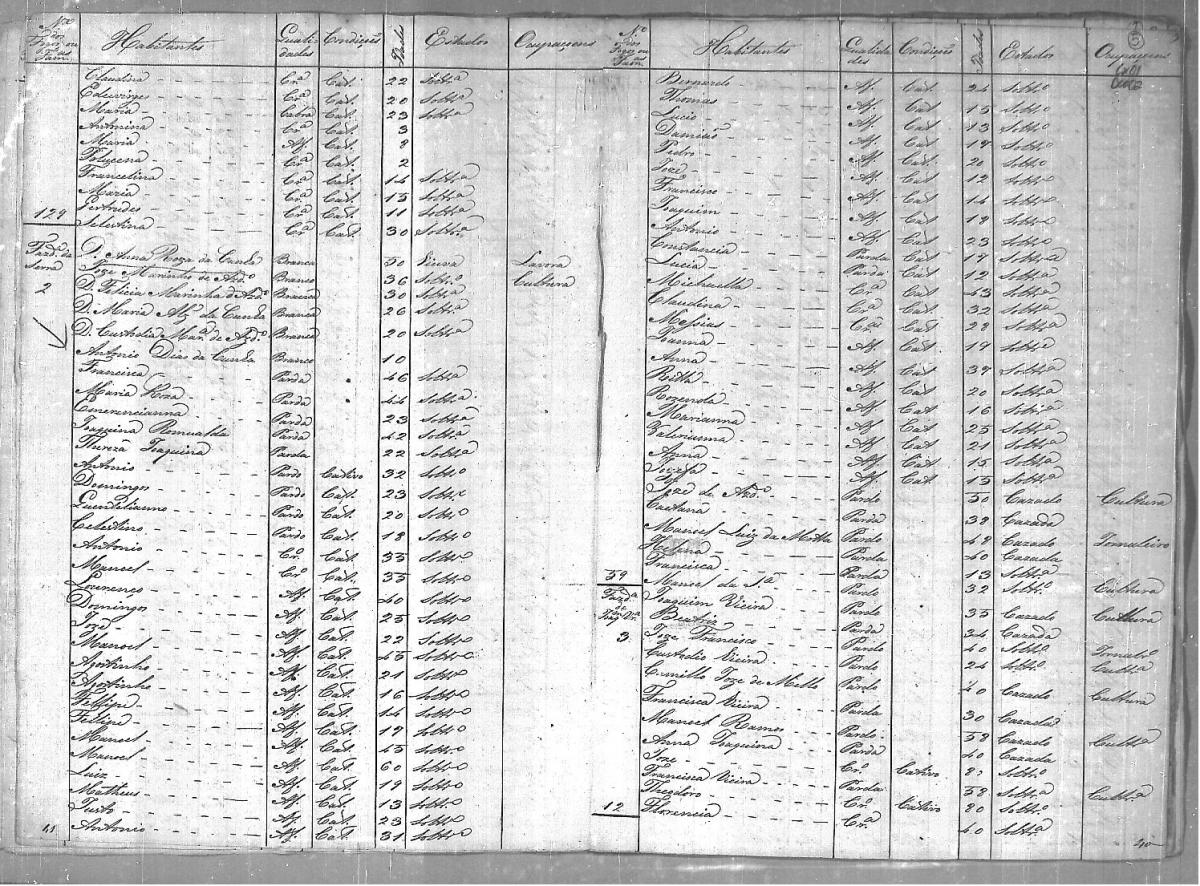 Nº dos Fogos ou Fam. Habitantes Qualidades Condições Idades Estados Ocupaçoens
Claudina Crª Cat. 22 Soltrª
Eduvirges Crª Cat. 20 Soltrª
Maria Cabra Cat. 23 Soltrª
Antonina Crª Cat. 3
Maria Af. Cat. 8
Polucena Crª Cat. 2
Francelina Crª Cat. 14 Soltrª
Maria Crª Cat. 15 Soltrª
Gertrudes Crª Cat. 11 Soltrª
129 Selestina Crª Cat. 30 Soltrª
Fazdª da Serra D. Anna Roza da Cunha Branca 50 Viuva Lavora
Joze Marinho de Azdº Branco 36 Soltrº Cultura
2 D. Felicia Marinha d'Azdº Branca 30 Soltrª
D. Maria Alz da Cunha Branca 26 Soltrª
D. Custodia Marª de Azdº Branca 20 Soltrª
Antonio Dias da Cunha Branco 10
Francisca Parda 46 Soltrª
Maria Roza Parda 44 Soltrª
Parda 23 Soltrª
Joaquina Romualda Parda 42 Soltrª
Thereza Joaquina Parda 22 Soltrª
Antonio Pardo Cativo 32 Soltrº
Domingos Pardo Cat. 23 Soltrº
Quentiliano Pardo Cat. 20 Soltrº
Celestino Pardo Cat. 18 Soltrº
Antonio Crº Cat. 35 Soltrº
Manoel Crº Cat. 35 Soltrº
Lourenco Af. Cat. 40 Soltrº
Domingos Af. Cat. 25 Soltrº
Joze Af. Cat. 22 Soltrº
Manoel Af. Cat. 45 Soltrº
Agostinho Af. Cat. 21 Soltrº
Agostinho Af. Cat. 16 Soltrº
Fellipe Af. Cat. 14 Soltrº
Fellipe Af. Cat. 17 Soltrº
Manoel Af. Cat. 45 Soltrº
Manoel Af. Cat. 60 Soltrº
Luiz Af. Cat. 19 Soltrº
Matheus Af. Cat. 13 Soltrº
Justo Af. Cat. 23 Soltrº
41 Antonio Af. Cat. 31 Soltrº
Nº dos Fogos ou Fam. Habitantes Qualidades Condições Idades Estados Ocupaçoens
Bernardo Af. Cat. 24 Soltrº
Thomas Af. Cat 15 Soltrº
Lucio Af. Cat 13 Soltrº
Damião Af. Cat. 17 Soltrº
Pedro Af. Cat. 20 Soltrº
Joze Af. Cat 12 Soltrº
Francisco Af. Cat 14 Soltrº
Joaquim Af. Cat 18 Soltrº
Antonio Af. Cat 23 Soltrº
Constancia Parda Cat 17 Soltrª
Lucia Parda Cat 12 Soltrª
Michaella Crª Cat 43 Soltrª
Claudina Crª Cat 32 Soltrª
Messias Crª Cat 28 Soltrª
Joanna Af. Cat 19 Soltrª
Anna Af. Cat 39 Soltrª
Ritta Af. Cat 20 Soltrª
Rozenda Af. Cat 16 Soltrª
Marianna Af. Cat 25 Soltrª
Valerianna Af. Cat 21 Soltrª
Anna Af. Cat 15 Soltrª
Jozefa Af. Cat 15 Soltrª
Joze de Azdº Pardo 50 Cazado Cultura
Caetana Parda 38 Cazada
Manoel Luiz da Motta Pardo 48 Cazado Jornaleiro
Helena Parda 40 Cazada
Francisca Parda 13 Soltrª
59 Manoel da Sª Pardo 32 Soltrº Cultura
Joaquim Vieira Pardo 35 Cazado Cultura
Beatriz Parda 34 Cazada
3 Joze Francisco Pardo 40 Soltrº Jornalrº
Custodio Vieira Pardo 24 Soltrº Cultrª
Camillo Joze de Mello Pardo 40 Cazado Cultura
Francisca Vieira Parda 30 Cazada
Manoel Ramos Pardo 58 Cazado Cultrª
Anna Joaquina Parda 40 Cazada
Joze Crº Cativo Soltrº
Francisca Vieira Parda 58 Soltrª Cultrª
Theodoro Crº Cativo 80 Soltrº
12 Florencia Crª 40 Soltrª
40